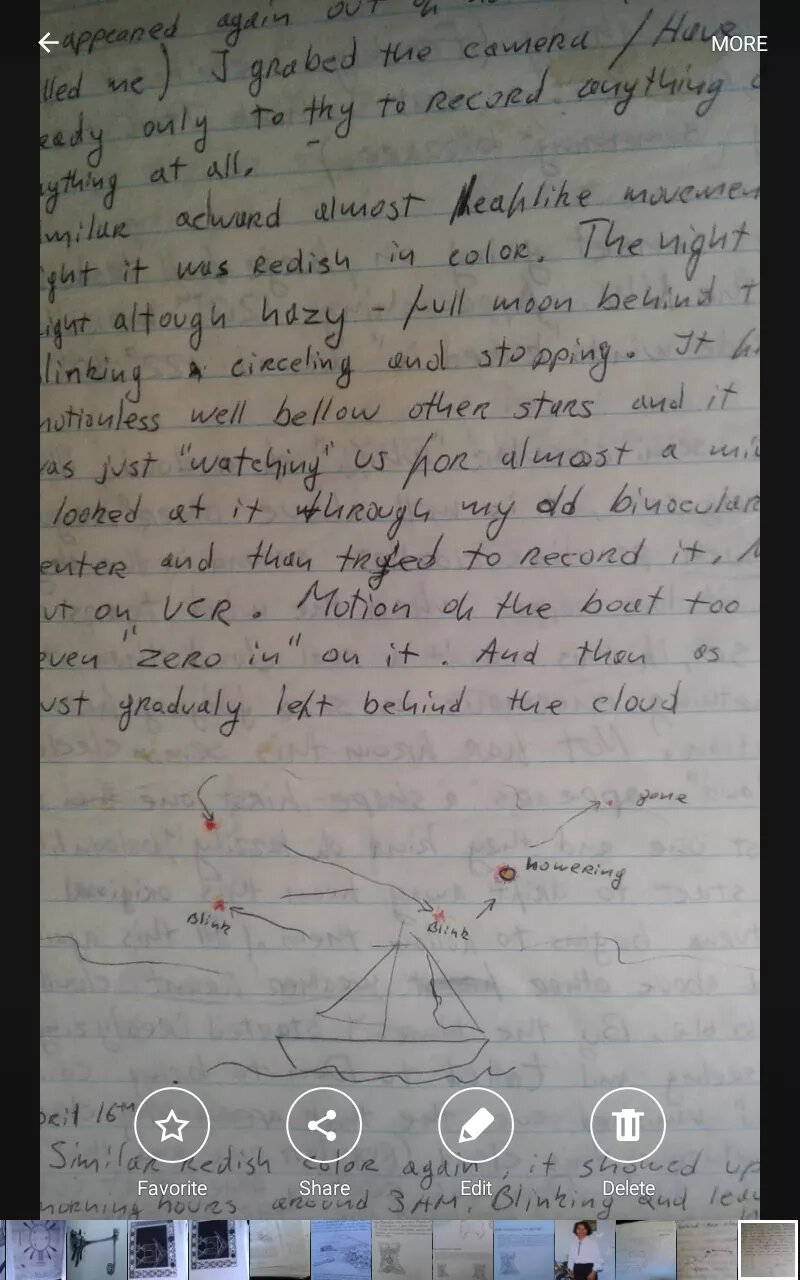 appeared again out
MORE
lled me) I grabed the camera / Have
eady only to thy to record anything
ything at all.
milar acward almost leaflike movemen
ght it was redish in color. The night
ight altough hazy - full moon behind t
linking circeling and stopping. It h
motionless well bellow other stars and it
as just "watching" us for almost a mi
looked at it through my old binocular
enter and than tryed to record it.
ut on VCR. Motion of the boat too
even "zero in" on it. And than as
ust gradualy left behind the cloud
gone
howering
Blink
Blink
pril 16th
Similar redish color again, it showed up
morning hours around 3 AM. Blinking and
Favorite
Share
Edit
Delete